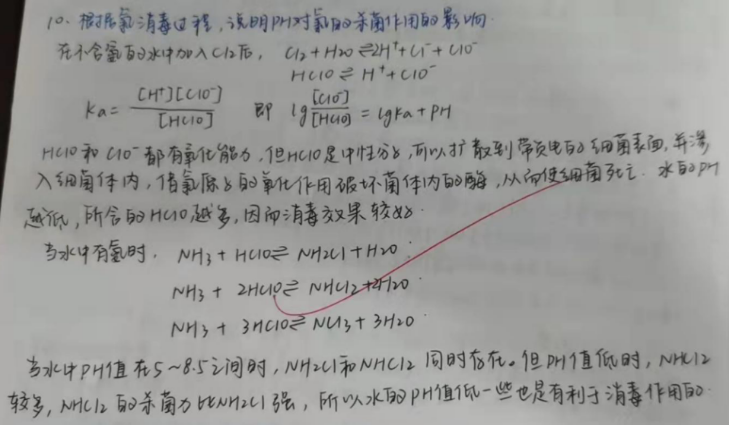 10. 根据氯消毒过程,说明PH对氯的杀菌作用的影响.
在不含氨的水中加入Cl2后, Cl2+H2O⇌2H⁺+Cl⁻+ClO⁻
HClO ⇌ H⁺+ClO⁻
Ka= [H⁺][ClO⁻] / [HClO] 即 lg [ClO⁻] / [HClO] = lgKa+PH
HClO和ClO⁻都有氧化能力,但HClO是中性分子,可以扩散到带负电的细菌表面,并渗
入细菌体内,借氯原子的氧化作用破坏菌体内的酶,从而使细菌死亡. 水的PH
越低,所含的HClO越多,因而消毒效果较好.
当水中有氨时, NH3+HClO⇌NH2Cl+H2O.
NH3+ 2HClO⇌ NHCl2+2H2O
NH3+ 3HClO⇌ NCl3+3H2O.
当水中PH值在5~8.5之间时,NH2Cl和NHCl2同时存在。但PH值低时,NHCl2
较多,NHCl2的杀菌力比NH2Cl强,所以水的PH值低一些也是有利于消毒作用的.